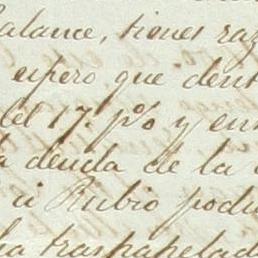 balance, tienes raz
espero que dent
del 17. p% y en
a deuda de la
a Rubio pod
ha traspapelad